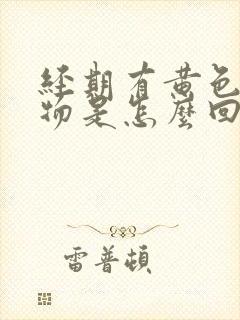 經期有黃色
物是怎麼回
雷普頓